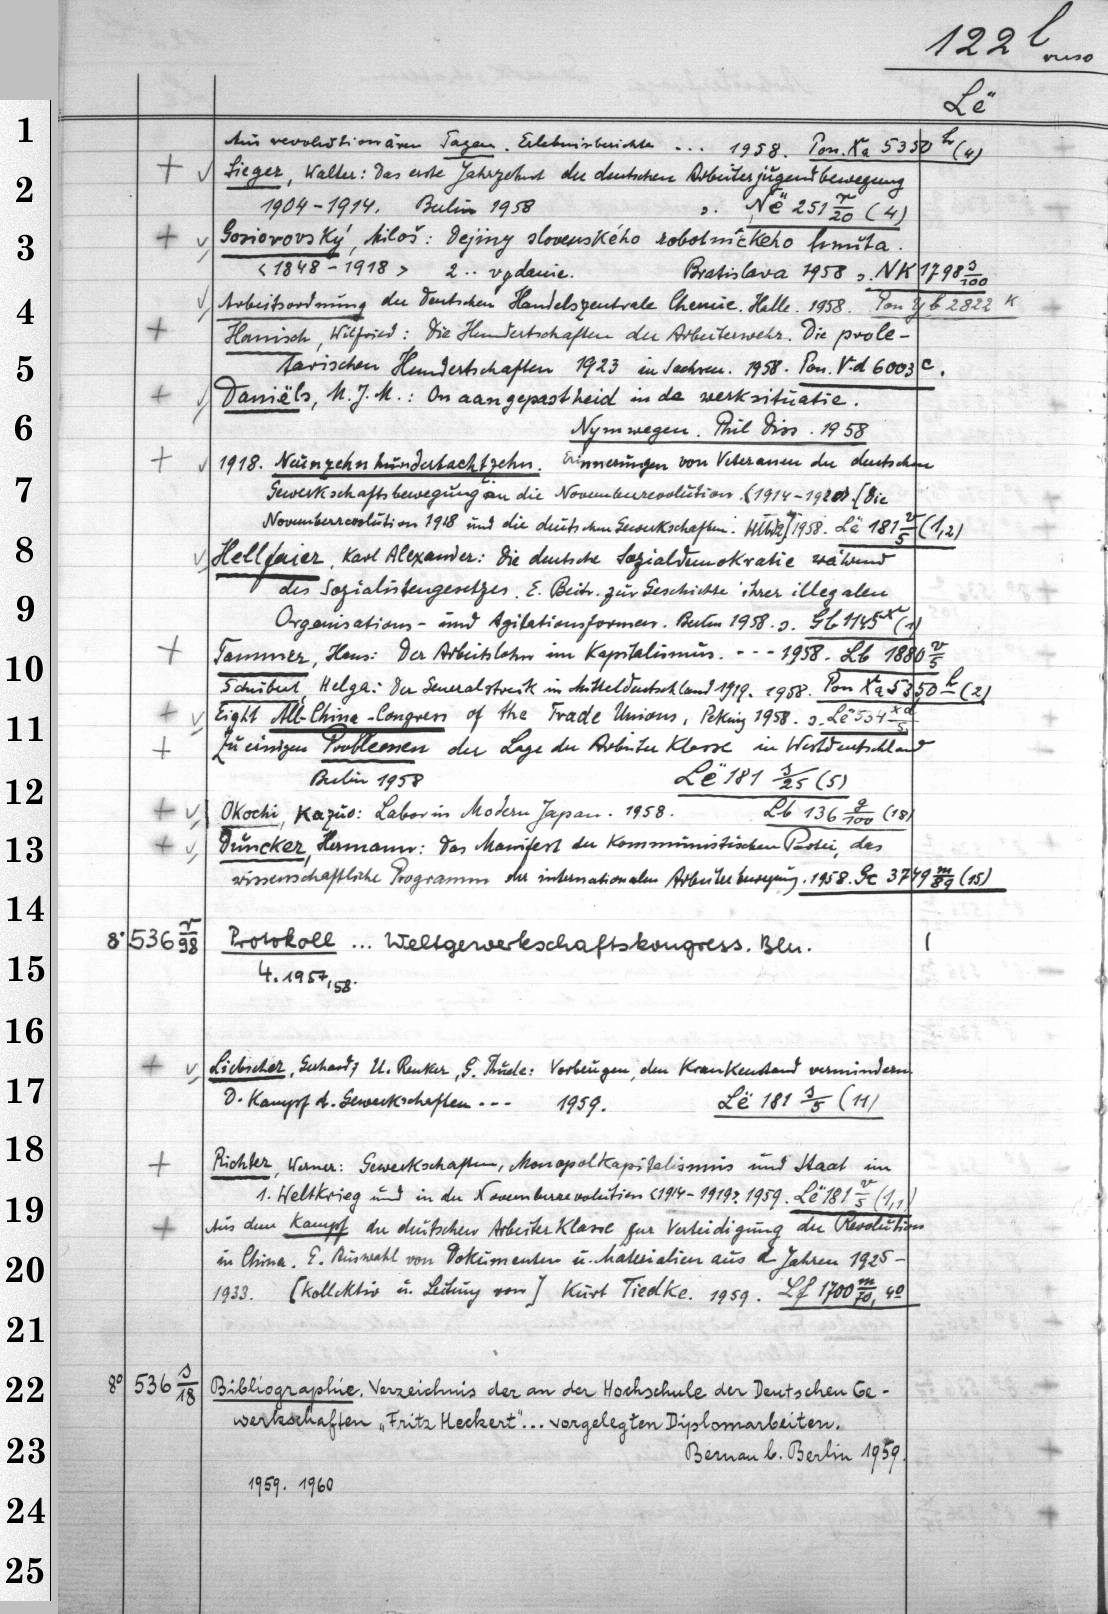 122 l
verso
Lë
1
Aus revolutionären Tagen. Erlebnisberichte ... 1958. Pon. Xa 5350 h (4)
2
+ √ Sieger, Walter: Das erste Jahrzehnt der deutschen Arbeiterjugendbewegung
1904-1914. Berlin 1958 s. Në 251 r/20 (4)
3
+ √ Gosiorovský, Miloš: Dejiny slovenského robotníckeho hnutia.
<1848-1918> 2.. vydanie. Bratislava 1958 s. NK 1798 s/100
4
√ Arbeitsordnung der Deutschen Handelszentrale Chemie. Halle. 1958. Pon Yb 2822 K
+ Hanisch, Wilfried: Die Hundertschaften der Arbeiterwehr. Die prole-
5
tarischen Hundertschaften 1923 in Sachsen. 1958. Pon. Vd 6003 c.
+ √ Daniëls, M. J. M.: Onaangepastheid in de werksituatie.
6
Nymwegen. Phil Diss. 1958
+ √ 1918. Neunzehnhundertachtzehn. Erinnerungen von Veteranen der deutschen
7
Gewerkschaftsbewegung an die Novemberrevolution <1914-1920> [Die
Novemberrevolution 1918 und die deutschen Gewerkschaften. 1958. Lë 181 v/5 (1,2)
8
√ Hellfaier, Karl Alexander: Die deutsche Sozialdemokratie während
des Sozialistengesetzes. E. Beitr. zur Geschichte ihrer illegalen
9
Organisations- und Agitationsformen. Berlin 1958. s. Gb 1145 x (1)
10
+ Tammer, Hans: Der Arbeitslohn im Kapitalismus. --- 1958. Lb 1880 v/5
Schubert, Helga: Der Generalstreik in Mitteldeutschland 1919. 1958. Pon Xa 5350 h (2)
11
+ √ Eight All-China-Congress of the Trade Unions, Peking 1958. s. Lë 534
+ Zu einigen Problemen der Lage der Arbeiterklasse in Westdeutschland
12
Berlin 1958 Lë 181 s/25 (5)
+ √ Okochi, Kazuo: Labor in Modern Japan. 1958. Lb 136 g/100 (18)
13
+ √ Duncker, Hermann: Das Manifest der Kommunistischen Partei, das
wissenschaftliche Programm der internationalen Arbeiterbewegung. 1958. Gc 3749 m/89 (15)
14
8° 536 r/98 Protokoll ... Weltgewerkschaftskongress. Bln. 1
15
4. 1957,58.
16
17
+ √ Liebscher, Gerhard, U. Renker, G. Thude: Vorbeugen, den Krankenstand vermindern
D. Kampf d. Gewerkschaften --- 1959. Lë 181 s/5 (11)
18
+ Richter, Werner: Gewerkschaften, Monopolkapitalismus und Staat im
19
1. Weltkrieg und in der Novemberrevolution <1914-1919>. 1959. Lë 181 v/5 (1,1)
+ Aus dem Kampf der deutschen Arbeiterklasse zur Verteidigung der Revolution
20
in China. E. Auswahl von Dokumenten u. Materialien aus d Jahren 1925-
1933. [Kollektiv u. Leitung von] Kurt Tiedke. 1959. Lf 1700 m/70, 40
21
22
8° 536 s/18 Bibliographie. Verzeichnis der an der Hochschule der Deutschen Ge-
werkschaften „Fritz Heckert“... vorgelegten Diplomarbeiten.
23
Bernau b. Berlin 1959.
1959. 1960
24
25